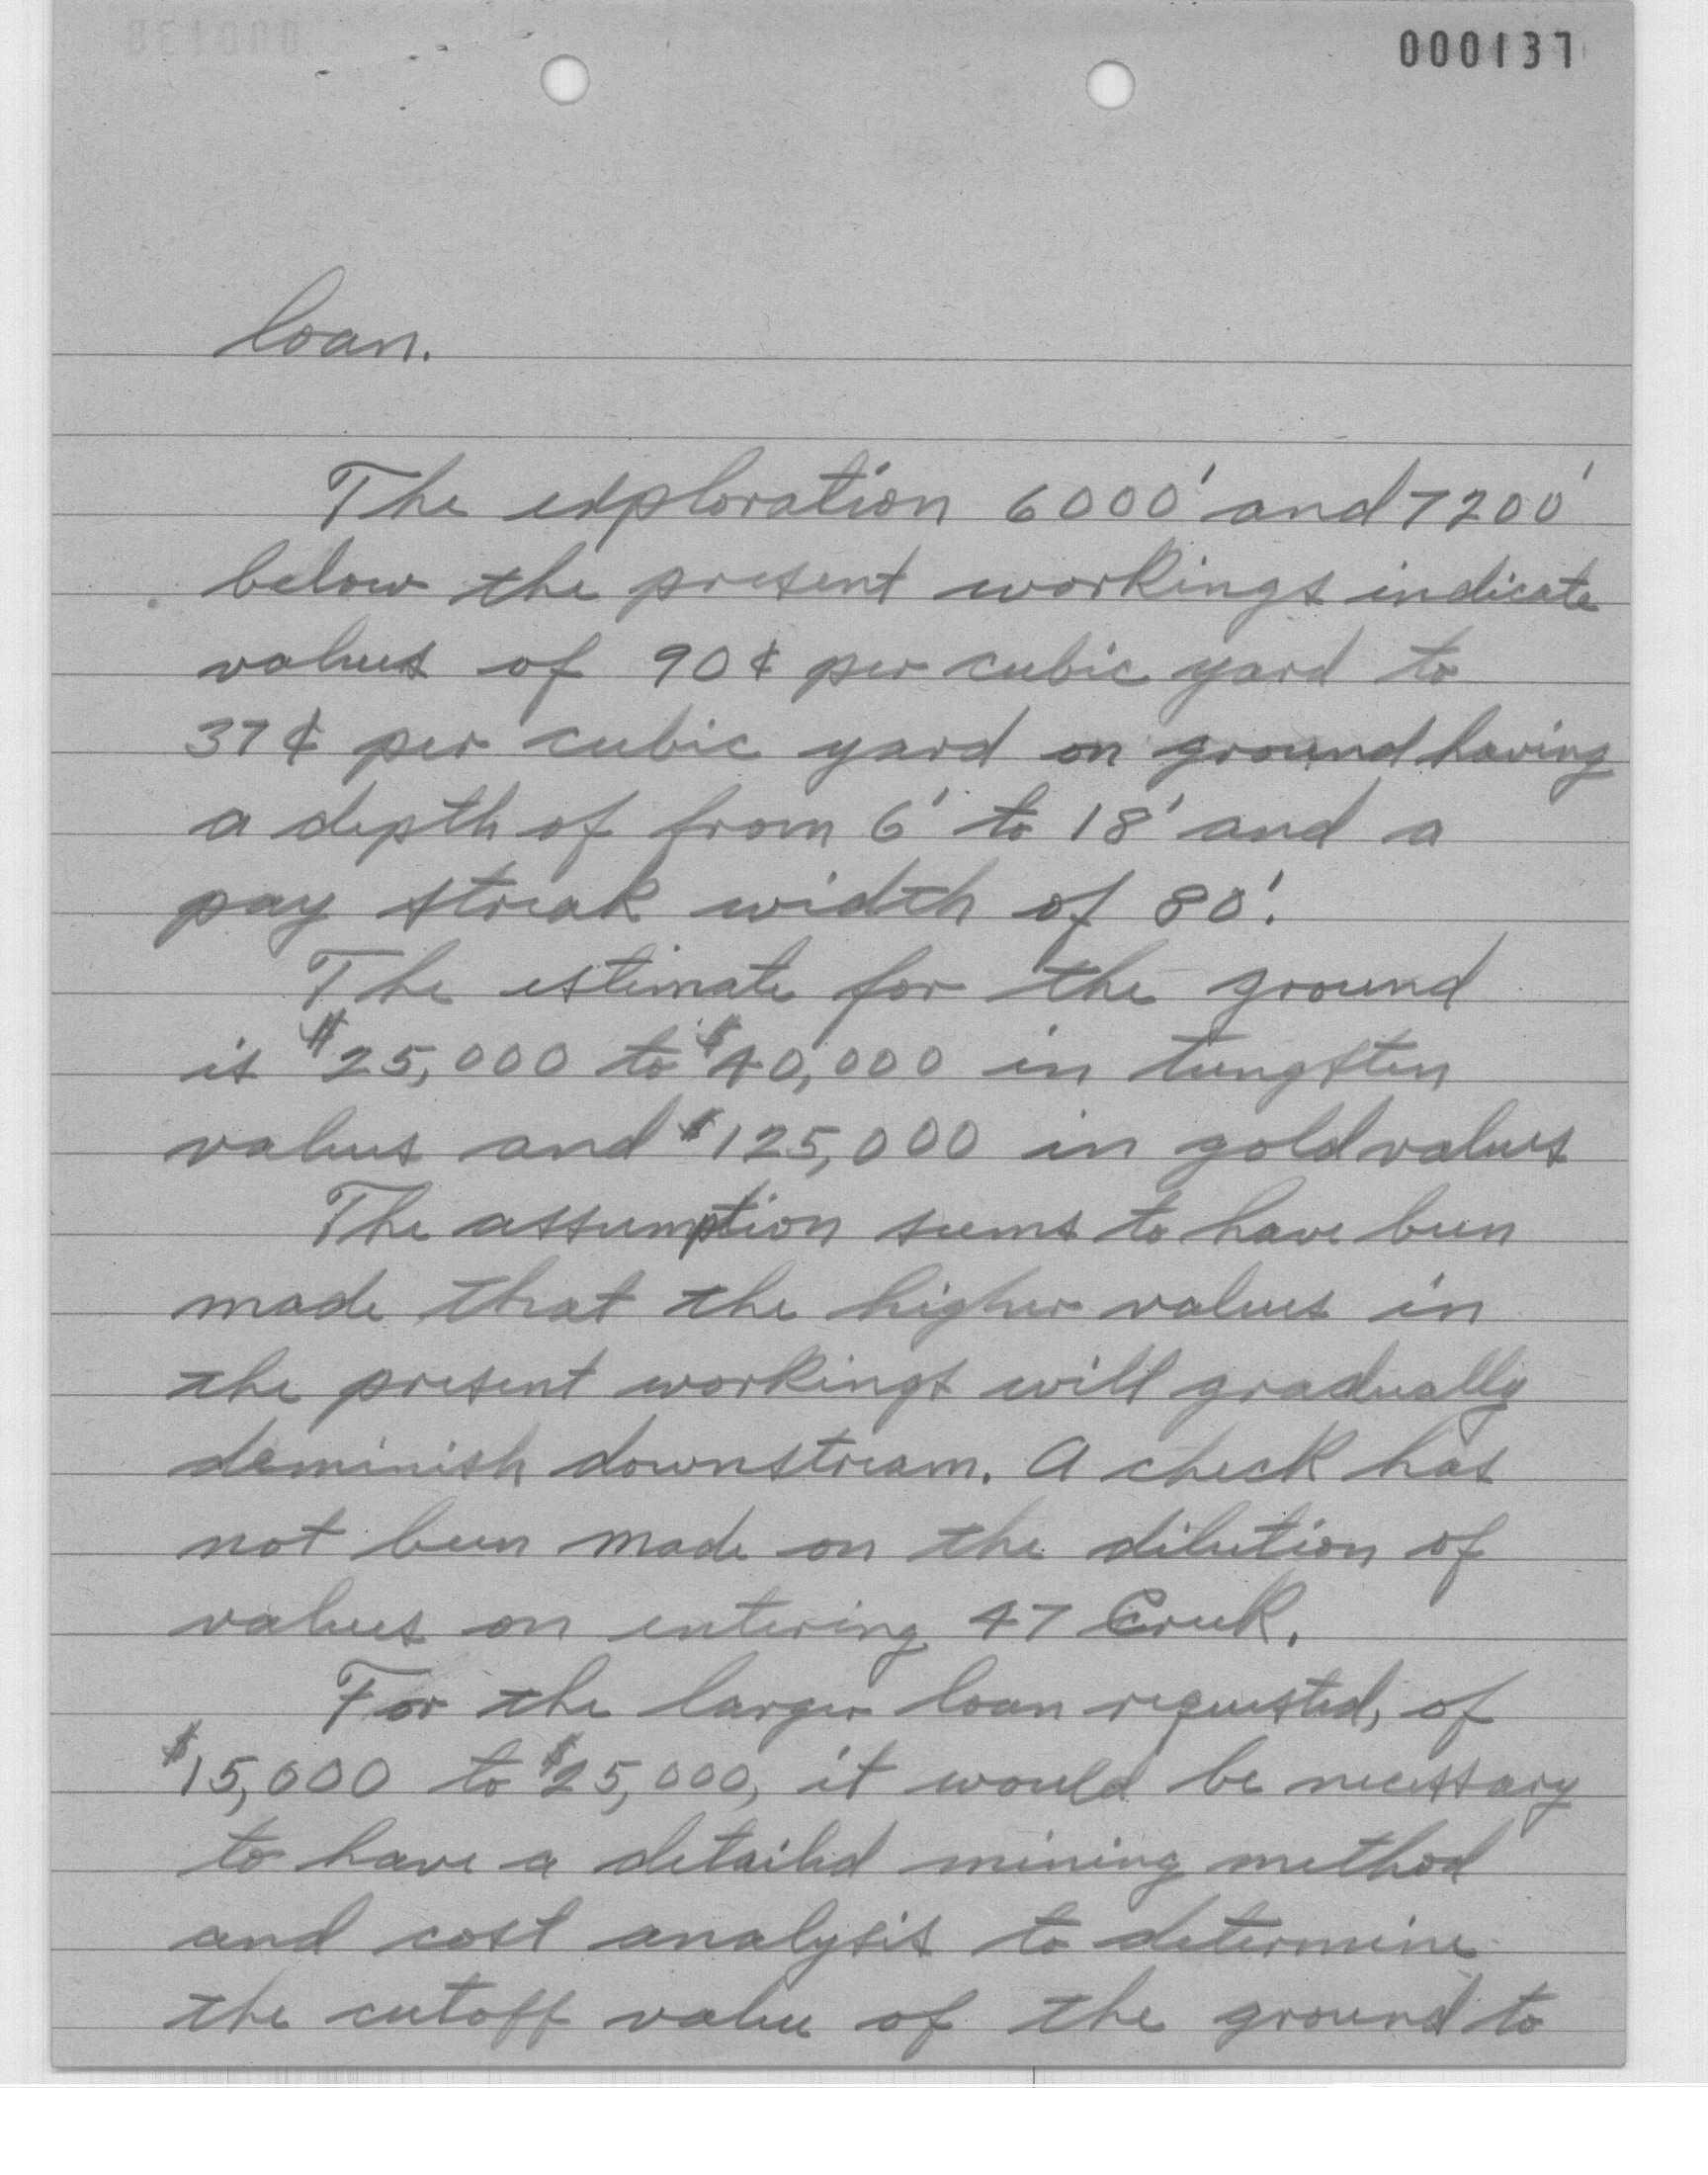 000137
loan.
The exploration 6000' and 7200'
below the present workings indicate
values of 90¢ per cubic yard to
37¢ per cubic yard on ground having
a depth of from 6' to 18' and a
pay streak width of 80'.
The estimate for the ground
is $25,000 to $40,000 in tungsten
values and $125,000 in gold values
The assumption seems to have been
made that the higher values in
the present workings will gradually
deminish downstream. A check has
not been made on the dilution of
values on entering 47 Creek.
For the larger loan requested, of
$15,000 to $25,000, it would be necessary
to have a detailed mining method
and cost analysis to determine
the cutoff value of the ground to